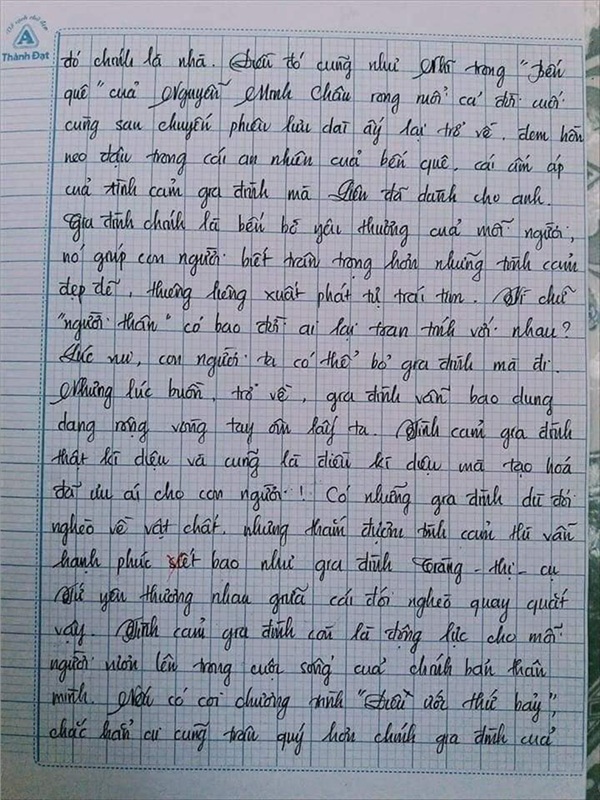 Vở sạch chữ đẹp
A
Thành Đạt
đó chính là nhà. Điều đó cũng như Nhĩ trong "Bến
quê" của Nguyễn Minh Châu rong ruổi cả đời cuối
cùng sau chuyến phiêu lưu dài ấy lại trở về, đem hồn
neo đậu trong cái an nhiên của bến quê, cái ấm áp
của tình cảm gia đình mà Liên đã dành cho anh.
Gia đình chính là bến bờ yêu thương của mỗi người,
nó giúp con người biết trân trọng hơn những tình cảm
đẹp đẽ, thiêng liêng xuất phát từ trái tim. Vì chữ
"người thân" có bao đời ai lại toan tính với nhau?
Lúc vui, con người ta có thể bỏ gia đình mà đi.
Nhưng lúc buồn, trở về, gia đình vẫn bao dung
dang rộng vòng tay ôm lấy ta. Tình cảm gia đình
thật kì diệu và cũng là điều kì diệu mà tạo hoá
đã ưu ái cho con người! Có những gia đình dù đói
nghèo về vật chất, nhưng thắm đượm tình cảm thì vẫn
hạnh phúc biết bao như gia đình Tràng - thị - cụ
Tứ yêu thương nhau giữa cái đói nghèo quay quắt
vậy. Tình cảm gia đình còn là động lực cho mỗi
người vươn lên trong cuộc sống của chính bản thân
mình. Nếu có coi chương trình "Điều ước thứ bảy",
chắc hẳn ai cũng trân quý hơn chính gia đình của